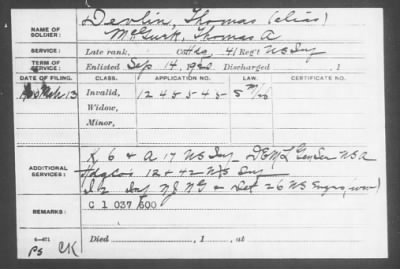 NAME OF SOLDIER: Devlin, Thomas (alias)
McGurk, Thomas A
SERVICE: Late rank, Co. Hdq, 41 Reg't US Inf
TERM OF SERVICE: Enlisted Sep 14, 1920 Discharged , 1
DATE OF FILING. CLASS. APPLICATION NO. LAW. CERTIFICATE NO.
13 Invalid, 1245545
Widow,
Minor,
ADDITIONAL SERVICES: K, 6 & A 17 US Inf DEML Gen Ser USA
Hdqlo's 12 + 42 US Inf
Inf NJ NG & Det 26 US Engrs (ww)
REMARKS: C 1 037 600
Died , 1 , at